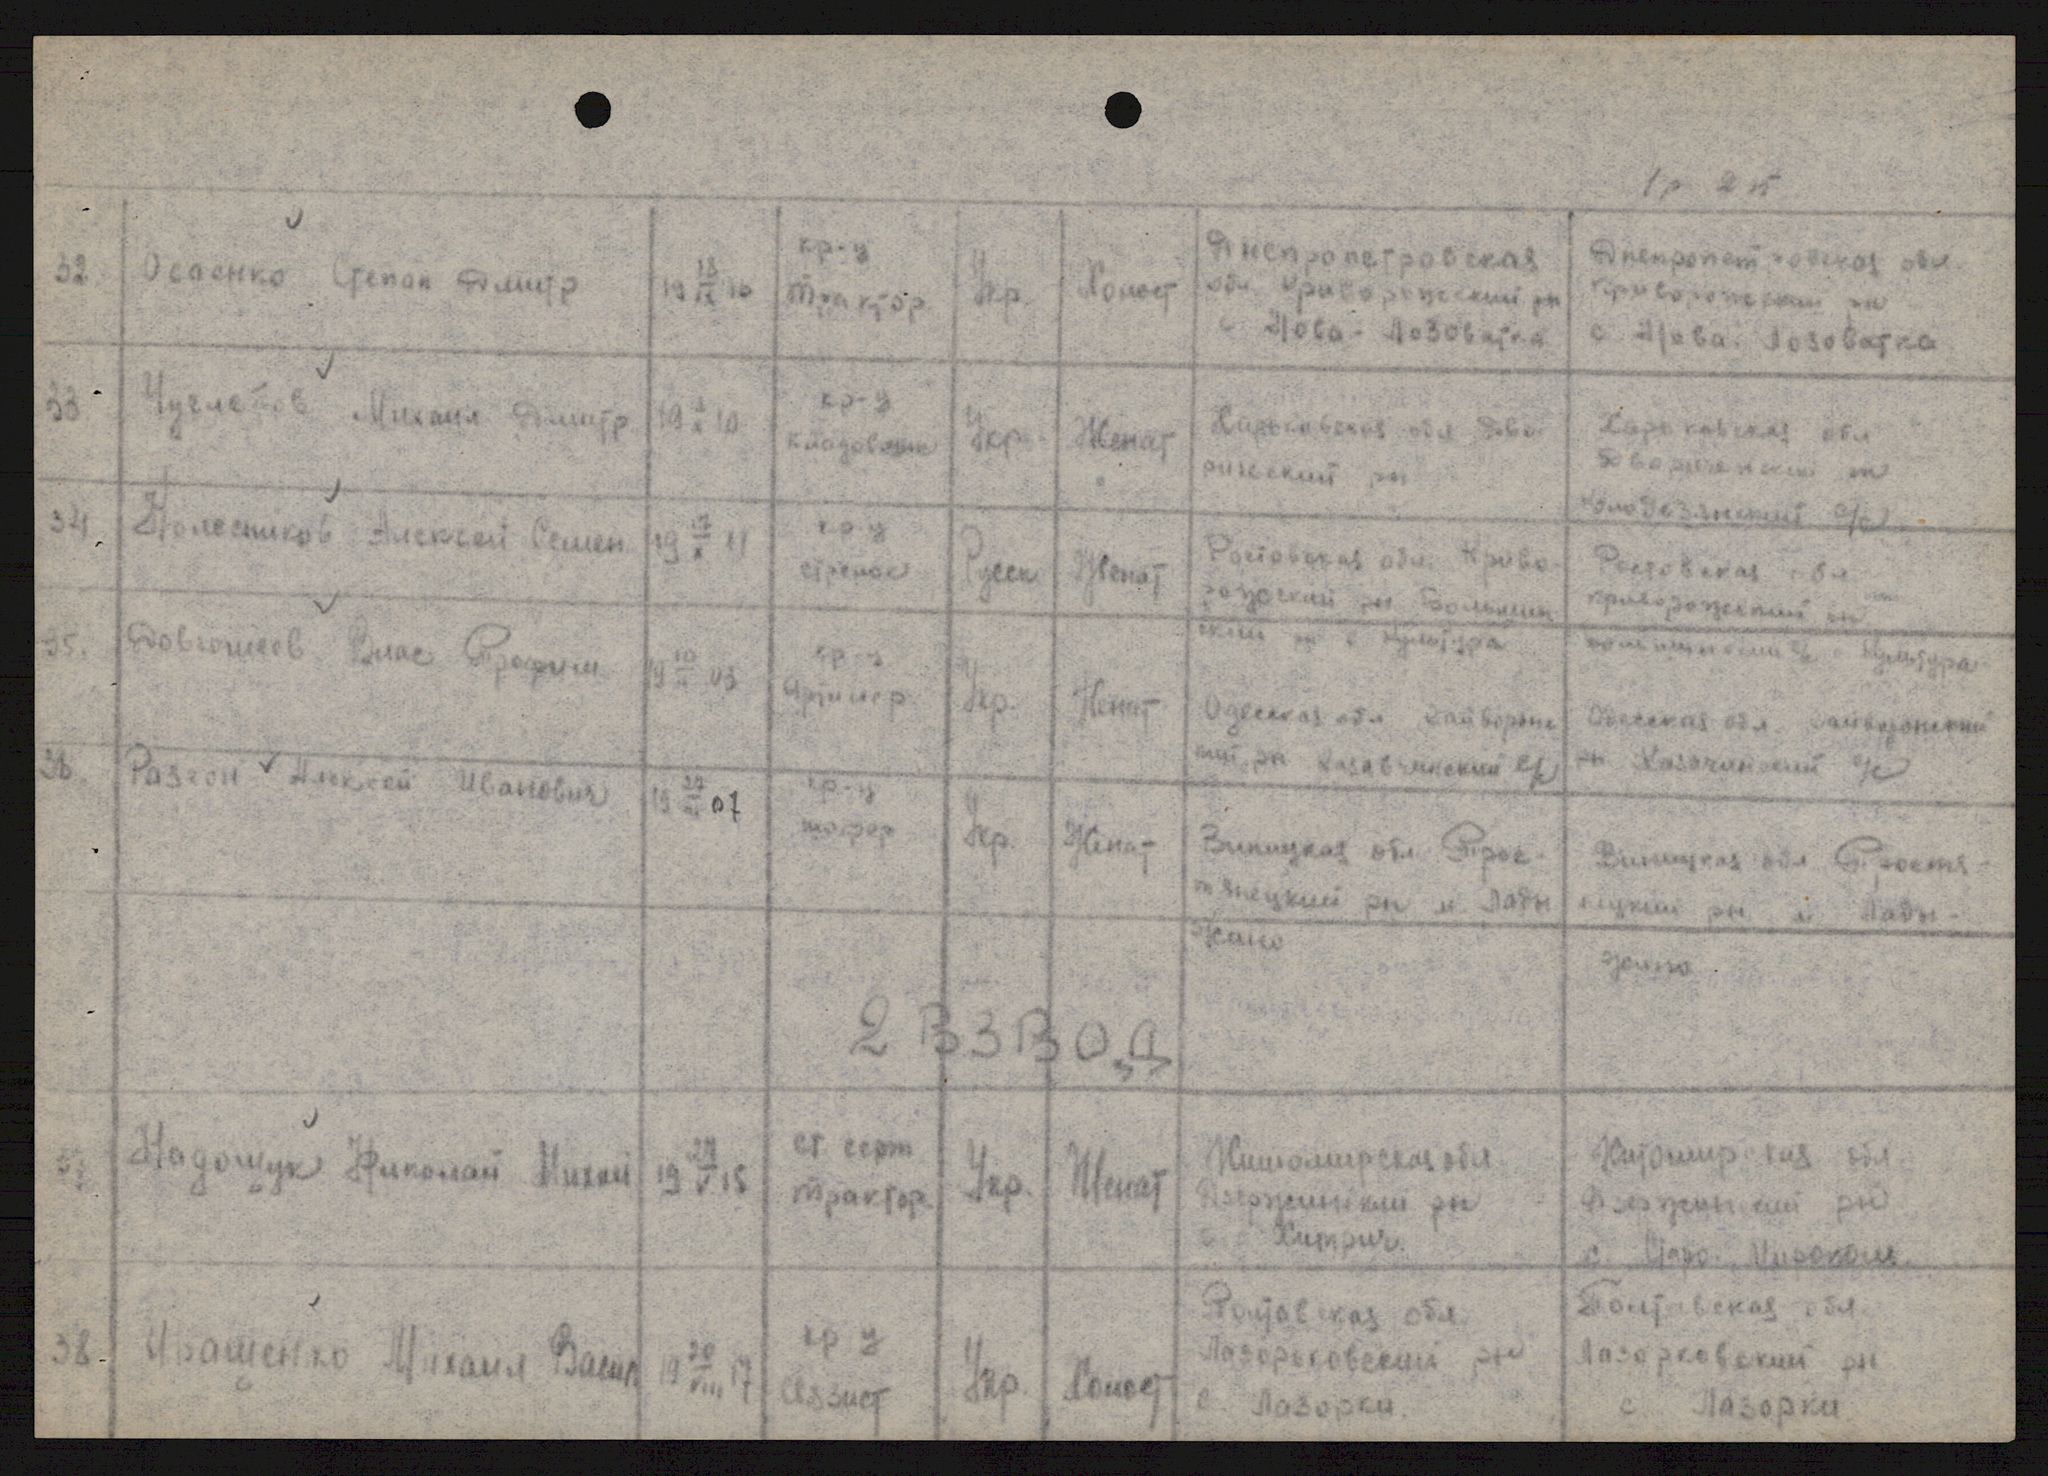 1р 2 п
32. Осаенко Степан Дмитр 19 13/IX 10 кр-ц Трактор. Укр. Холост
Днепропетровская
обл. Криворожский рн
с Нова-Лозоватка
Днепропетровская обл.
Криворожский рн
с. Нова Лозоватка
33 Михаил Дмитр. 19 10 кр-ц кладовщик Укр. Женат
Харьковская обл Дво-
риченский рн
Харьковская обл
Двориченский рн
Колодезянский с/с
34 Колесников Алексей Семен. 19 11 кр-ц стрелок Русск Женат
Ростовская обл. Криво-
рожский рн Большин
ский рн с Культура
Ростовская обл
криворожский рн
с Культура
35. Влас Трофим 19 10 03 кр-ц Укр. Женат
Одесская обл Гайворонс
кий рн Хазавчинский с/с
Одесская обл. Гайворонский
рн Хазачинский с/с
36. Разгон Алексей Иванович 19 07 кр-ц шофер Укр. Женат
Виницкая обл Трос-
тянецкий рн м Лады
жино
Виницкая обл Тростя-
нецкий рн м Лады-
жино
2 ВЗВОД
37 Надощук Николай Михай 19 29/V 15 ст серж Трактор. Укр. Женат
Житомирская обл
Дзержинский рн
с
Житомирская обл.
Дзержинский рн
с.
38. Иващенко Михаил Васил 19 20/VIII 17 кр ц Укр. Холост
Полтавская обл.
Лазорьковский рн
с. Лазорки.
Полтавская обл
Лазорковский рн
с Лазорки